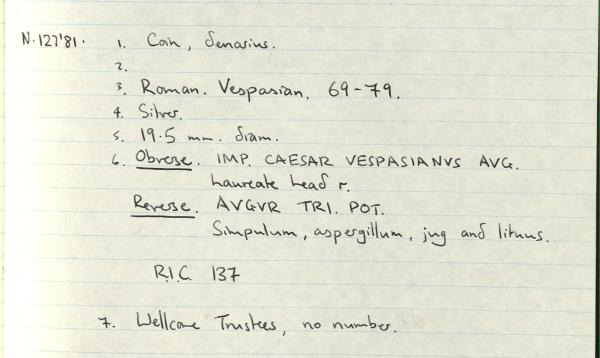 N.127'81. 1. Coin, denarius.
2.
3. Roman. Vespasian. 69-79.
4. Silver.
5. 19.5 mm. diam.
6. Obverse. IMP. CAESAR VESPASIANVS AVG.
Laureate head r.
Reverse. AVGVR TRI. POT.
Simpulum, aspergillum, jug and lituus.
R.I.C. 137
7. Wellcome Trustees, no number.